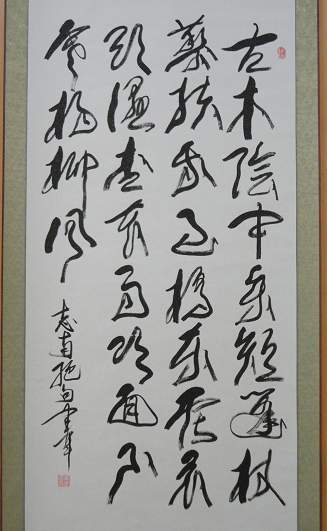 古木陰中系短篷杖
藜扶我過橋東沾衣
欲濕杏花雨吹面不
寒楊柳風
志南絕句